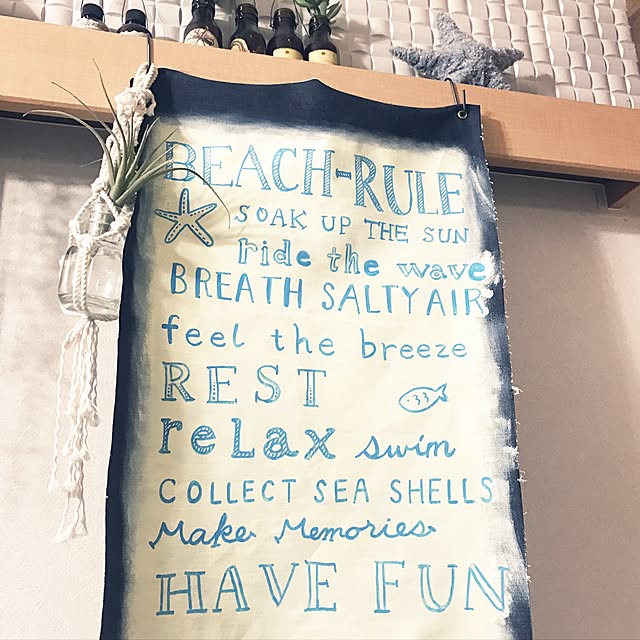 BEACH-RULE
SOAK UP THE SUN
ride the wave
BREATH SALTY AIR
feel the breeze
REST
reLax swim
COLLECT SEA SHELLS
Make Memories
HAVE FUN